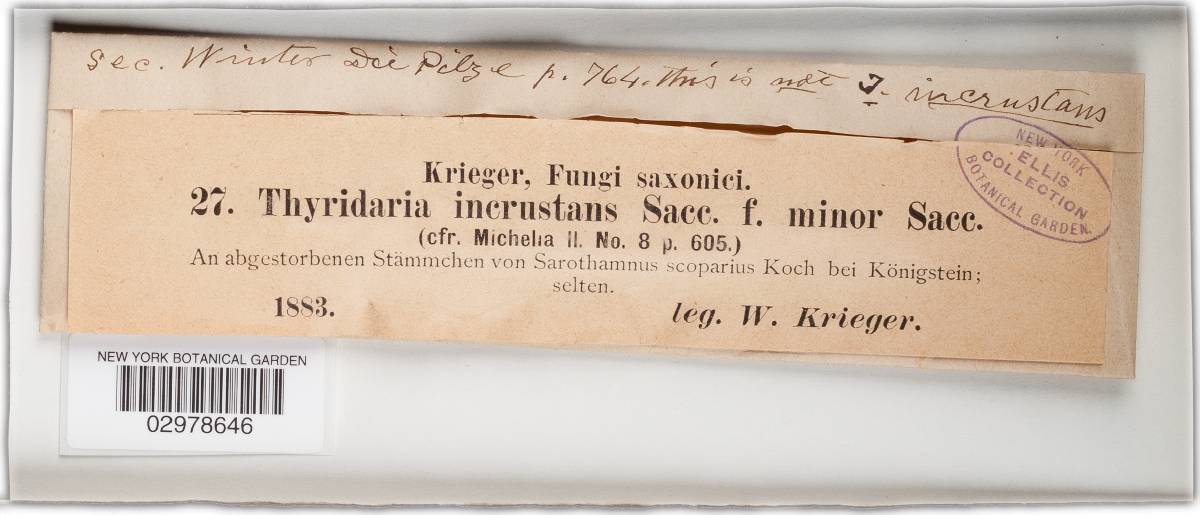 Sec. Winter Die Pilze p. 764. this is not T. incrustans
Krieger, Fungi saxonici.
27. Thyridaria incrustans Sacc. f. minor Sacc.
(cfr. Michelia II. No. 8 p. 605.)
An abgestorbenen Stämmchen von Sarothamnus scoparius Koch bei Königstein;
selten.
1883. leg. W. Krieger.
NEW YORK
ELLIS
COLLECTION
BOTANICAL GARDEN.
NEW YORK BOTANICAL GARDEN
02978646